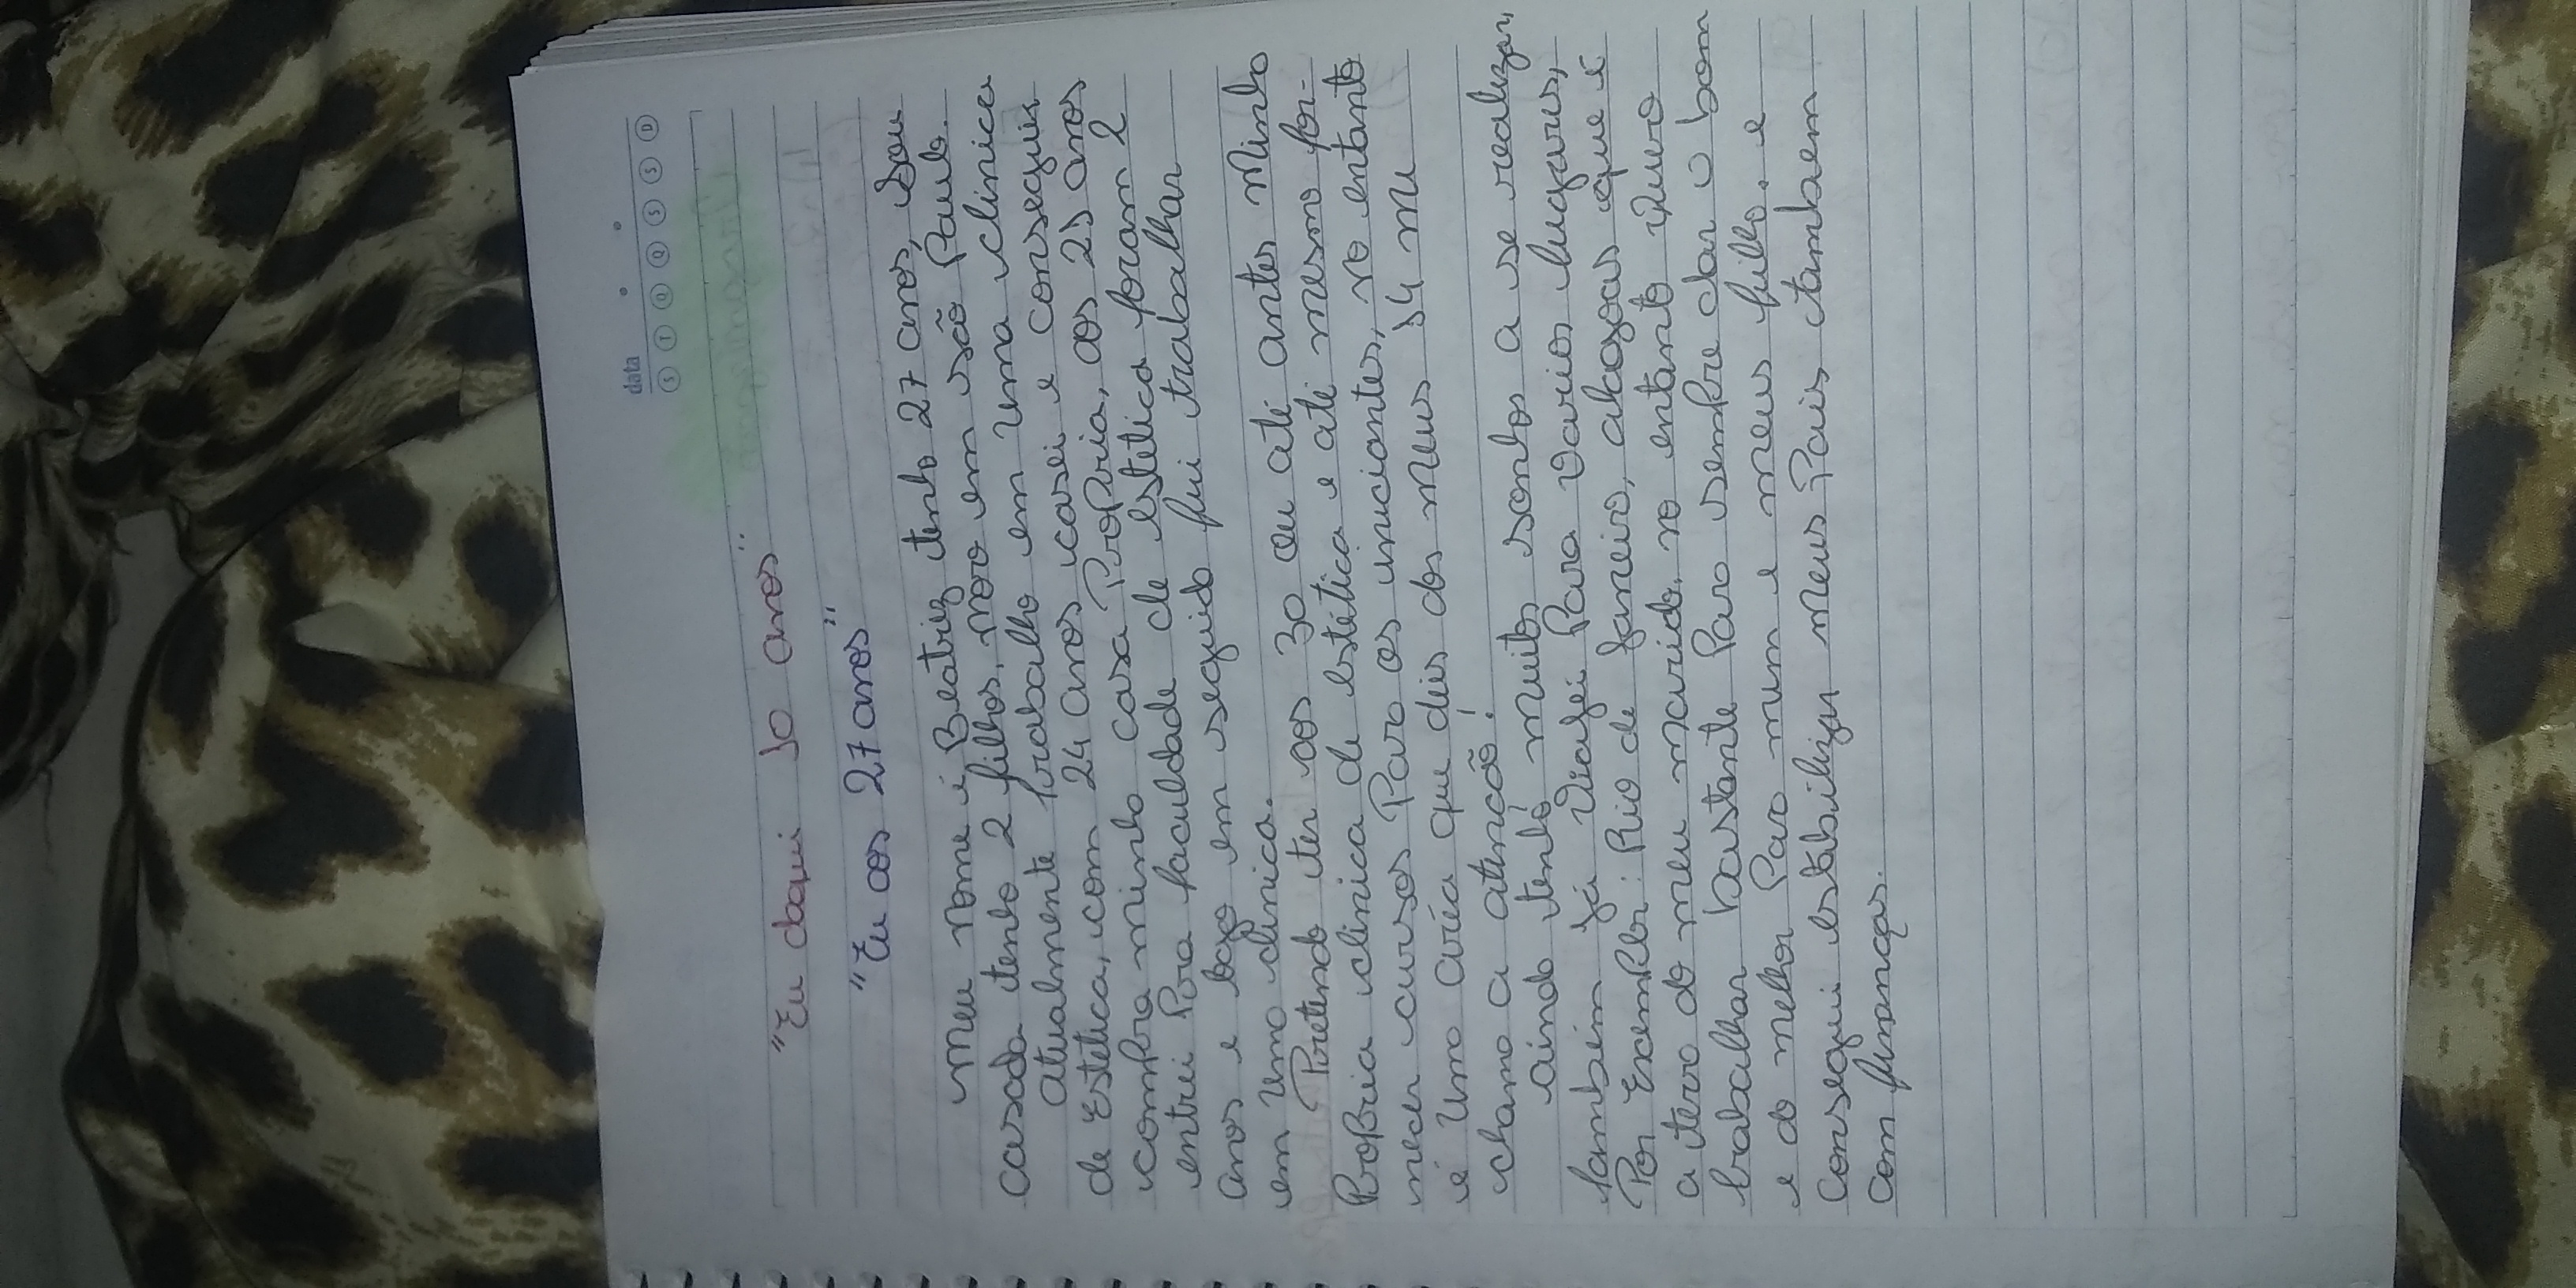 data
S T Q Q S S D
"Eu daqui 10 anos"
"Eu aos 27 anos"
Meu nome é Beatriz tenho 27 anos, Sou
casada tenho 2 filhos, moro em são Paulo.
atualmente trabalho em uma clinica
de Estetica, com 24 anos casei e consegui
compra minha casa Propria, aos 25 anos
entrei Pra faculdade de estetica foram 2
anos e logo em seguida fui trabalhar
em uma clinica.
Pretendo ter aos 30 ou até antes Minha
Propria clinica de estética e até mesmo for-
necer cursos Para os iniciantes, no entanto
é uma aréa que deis dos meus 14 me
chama a atencão!
ainda tenho muitos sonhos a se realizar,
também já Viagei Para varios lugares,
Por Exemplo: Rio de Janeiro, alagoas que é
a terra do meu marido. no entanto quero
trabalhar bastante Para sempre dar o bom
e do melhor Para mim e meus filho. e
Consegui estabilizar meus Pais tambaem
com finanças.